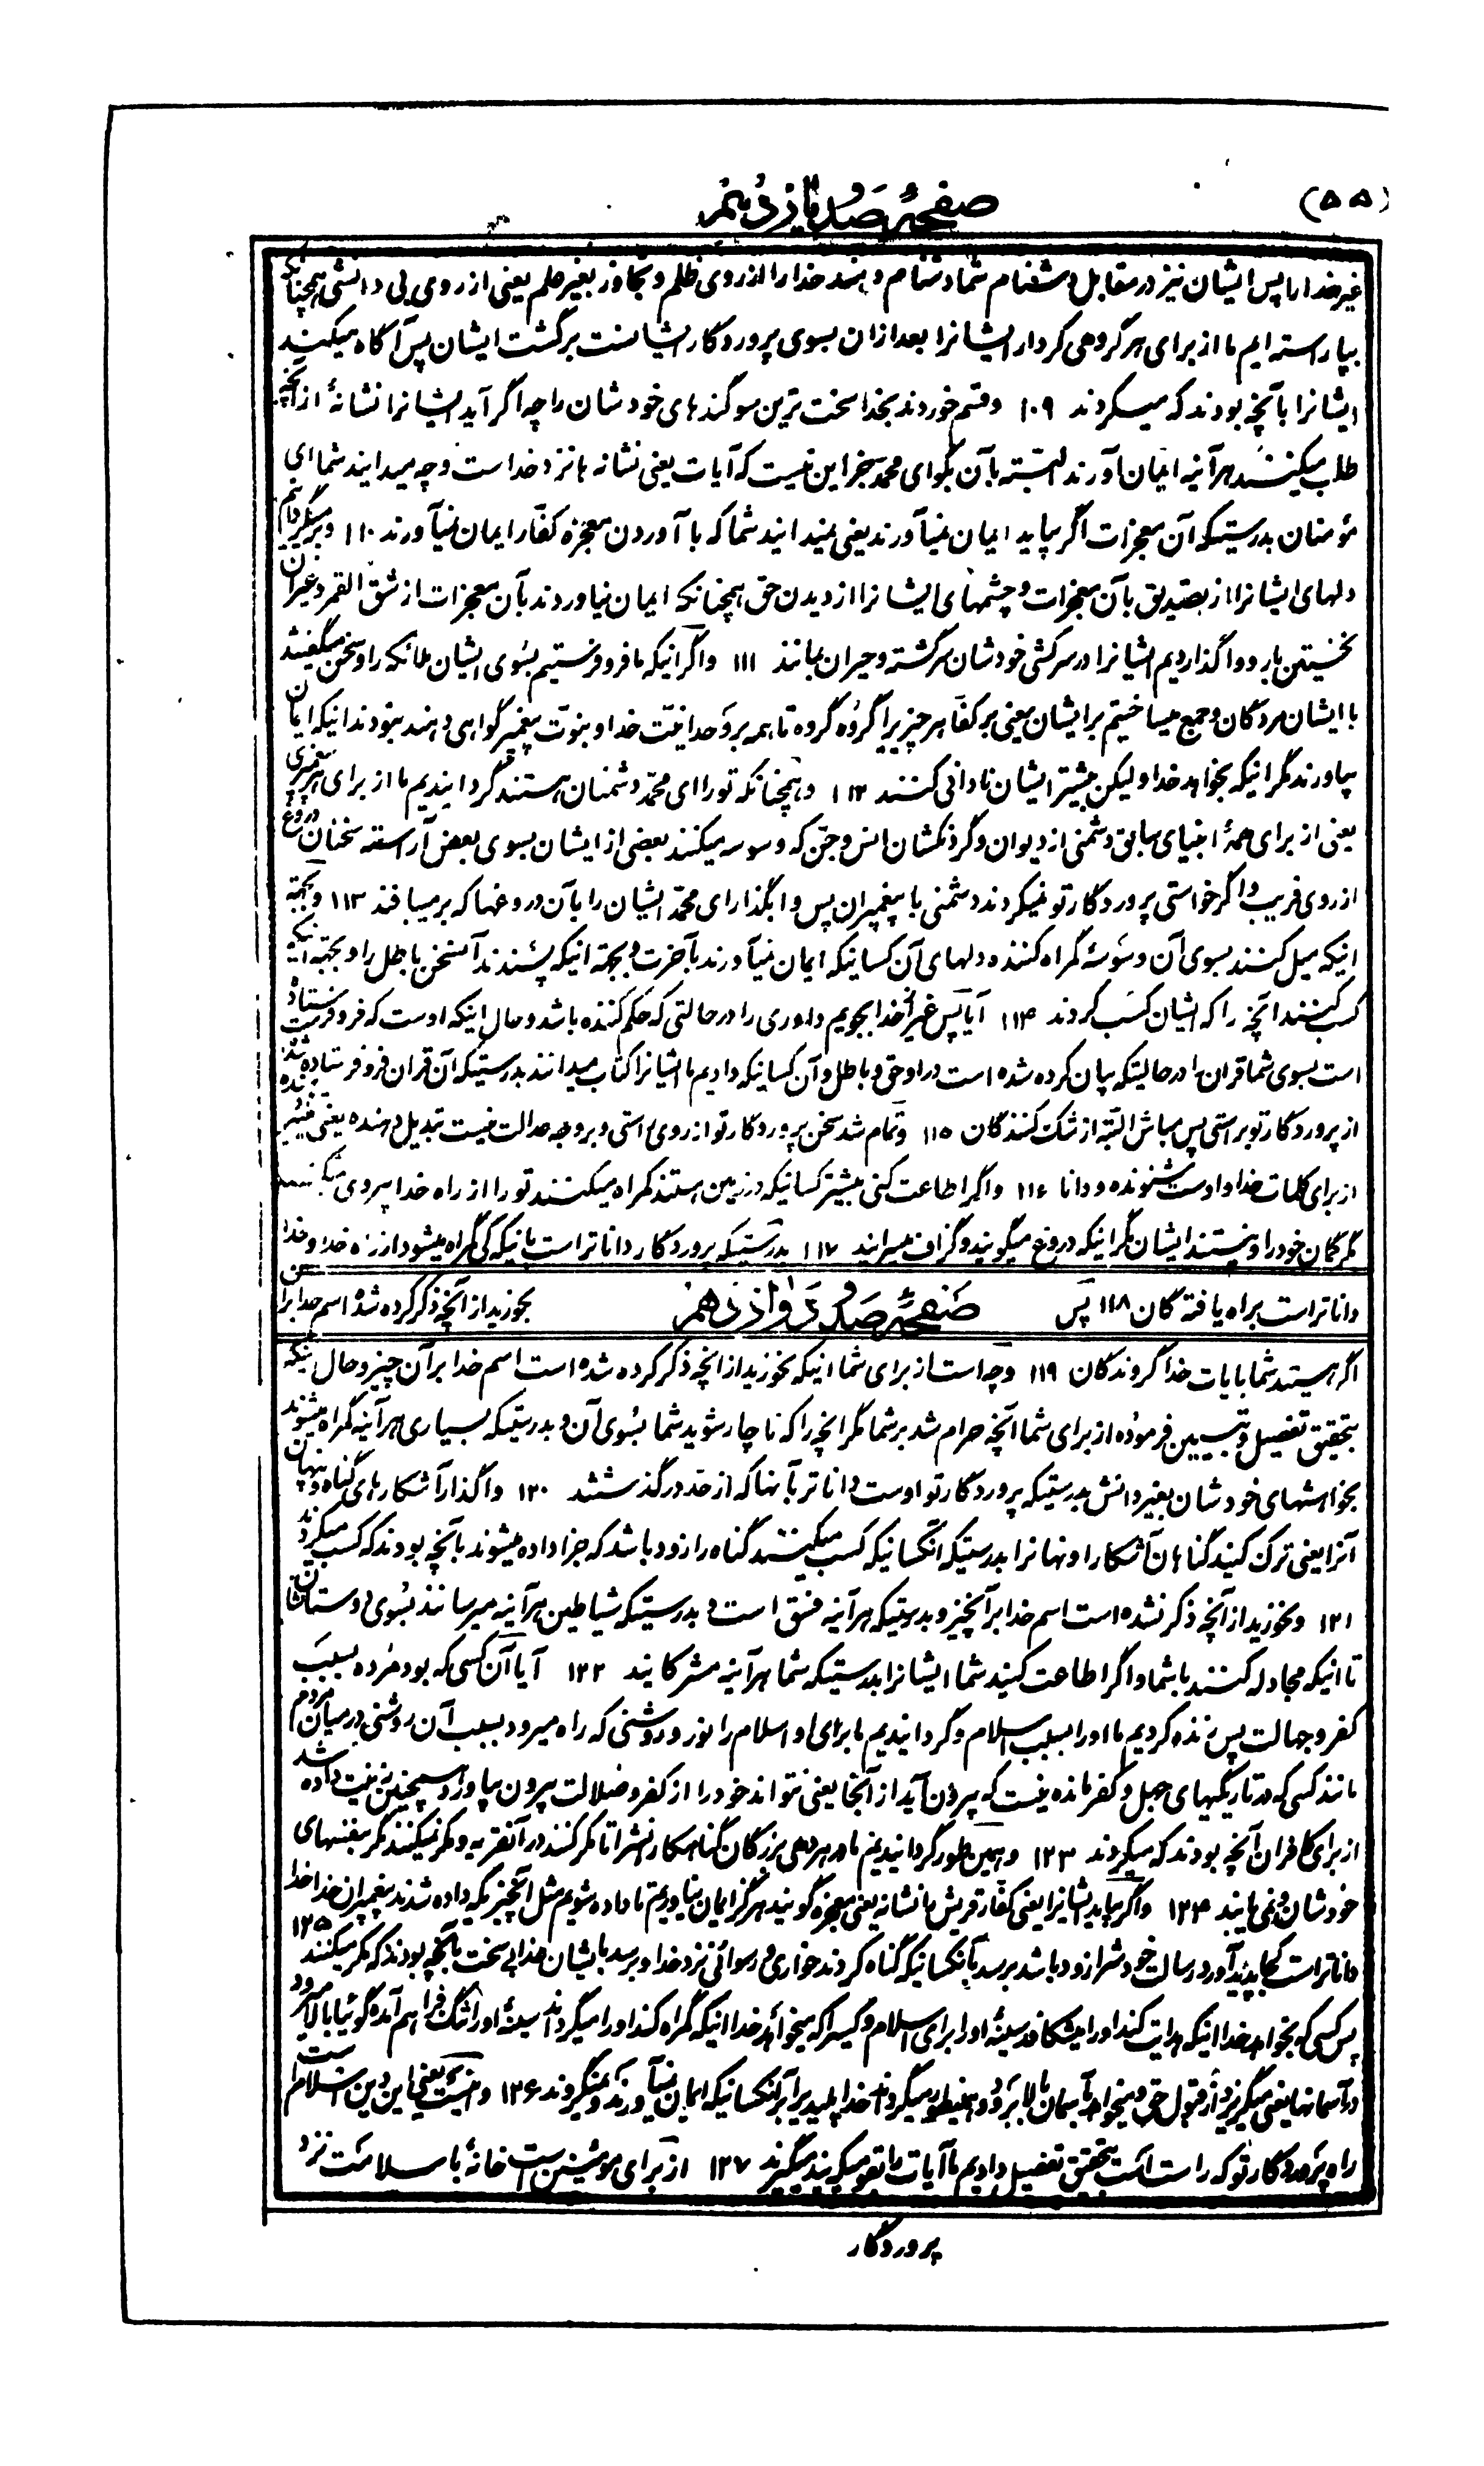 (۵۵)
صفحهٔ صد و یازدهم
غیر خدا را پس ایشان نیز در مقابل دشنام شما دشنام دهند خدا را از روی ظلم و تجاوز بغیر علم یعنی از روی بی دانشی همچنانکه
بیاراسته ایم ما از برای هر گروهی کردار ایشانرا بعد از ان بسوی پروردگار ایشانست برگشت ایشان پس آگاه میکند
ایشانرا بآنچه بودند که میکردند ۱۰۹ و قسم خوردند بخدا سخت ترین سوگندهای خودشان را چه اگر آید ایشانرا نشانهٔ از آنچه
طلب میکنند هرآینه ایمان آورند البته بآن بگو ای محمد جز این نیست که آیات یعنی نشانه ها نزد خداست و چه میدانید شما ای
مؤمنان بدرستیکه آن معجزات اگر بیاید ایمان نمیآورند یعنی نمیدانید شما که با آوردن معجزه کفار ایمان نمیآورند ۱۱۰ و برمیگردانیم
دلهای ایشانرا از تصدیق بآن معجزات و چشمهای ایشانرا از دیدن حق همچنانکه ایمان نیاوردند بآن معجزات از شق القمر و غیر آن
نخستین بار و واگذاردیم ایشانرا در سرکشی خودشان سرگشته و حیران بمانند ۱۱۱ و اگر اینکه ما فرو فرستیم بسوی ایشان ملائکه را و سخن میگفتند
با ایشان مردگان و جمع میساختیم بر ایشان یعنی بر کفار هر چیز را گروه گروه تا همه بر وحدانیت خدا و نبوت پیغمبر گواهی دهند نبودند اینکه ایمان
بیاورند مگر اینکه بخواهد خدا و لیکن بیشتر ایشان نادانی کنند ۱۱۲ و همچنانکه تو را ای محمد دشمنان هستند گردانیدیم ما از برای هر پیغمبری
یعنی از برای همهٔ انبیای سابق دشمنی از دیوان و گردنکشان انس و جن که وسوسه میکنند بعضی از ایشان بسوی بعض آراسته سخنان دروغ
از روی فریب و اگر خواستی پروردگار تو نمیکردند دشمنی با پیغمبران پس واگذار ای محمد ایشان را با آن دروغها که برمیبافند ۱۱۳ و بجهة
اینکه میل کنند بسوی آن وسوسهٔ گمراه کننده دلهای آن کسانیکه ایمان نمیآورند بآخرت و بجهة اینکه پسندند آنسخن باطل را و بجهة اینکه
کسب کنند انچه را که ایشان کسب کردند ۱۱۴ آیا پس غیر از خدا بجویم داوری را در حالتی که حکم کننده باشد و حال اینکه اوست که فرو فرستاده
است بسوی شما قران را در حالتیکه بیان کرده شده است در او حق و باطل و آن کسانیکه دادیم ما ایشانرا کتاب میدانند بدرستیکه آن قران فرو فرستاده شده
از پروردگار تو براستی پس مباش البته از شک کنندگان ۱۱۵ و تمام شد سخن پروردگار تو از روی راستی و بر وجه عدالت نیست تبدیل دهنده یعنی تغییر
از برای کلمات خدا و اوست شنونده و دانا ۱۱۶ و اگر اطاعت کنی بیشتر کسانیکه در زمین استند گمراه میکنند تو را از راه خدا پیروی
مگر گمان خود را و نیستند ایشان مگر اینکه دروغ میگویند و گزاف میسرایند ۱۱۷ بدرستیکه پروردگار داناتر است بآنیکه کی گمراه میشود از راه خدا و خدا
داناتر است براه یافته گان ۱۱۸ پس
صفحهٔ صد و دوازدهم
بخورید از آنچه ذکر کرده شده اسم خدا بر آن
اگر هستید شما بایات خدا گروندگان ۱۱۹ و چه است از برای شما اینکه نخورید از انچه ذکر کرده شده است اسم خدا بر آن چیز و حال اینکه
بتحقیق تفصیل و تبیین فرموده از برای شما آنچه حرام شد بر شما مگر انچه را که ناچار شوید شما بسوی آن و بدرستیکه بسیاری هرآینه گمراه میشوند
بخواهشهای خودشان بغیر دانش بدرستیکه پروردگار تو اوست داناتر بآنها که از حد درگذشتند ۱۲۰ واگذار آشکارهای گناه و پنهان
آنرا یعنی ترک کنید گناهان آشکارا و نهانرا بدرستیکه آنکسانیکه کسب میکنند گناه را زود باشد که جزا داده میشوند بآنچه بودند که کسب میکردند
۱۲۱ و نخورید از آنچه ذکر نشده است اسم خدا بر آنچیز و بدرستیکه هرآینه فسق است و بدرستیکه شیاطین هرآینه میرسانند بسوی دوستانشان
تا اینکه مجادله کنند با شما و اگر اطاعت کنید شما ایشانرا بدرستیکه شما هرآینه مشرکانید ۱۲۲ آیا آن کسی که بود مرده بسبب
کفر و جهالت پس زنده کردیم ما او را بسبب اسلام و گردانیدیم ما برای او اسلام را نور و روشنی که راه میرود بسبب آن روشنی در میان مردم
مانند کسی که در تاریکیهای جهل و کفر مانده نیست که بیرون آید از آنجا یعنی نتواند خود را از کفر و ضلالت بیرون بیاورد همچنین زینت داده شد
از برای کافران آنچه بودند که میکردند ۱۲۳ و همین طور گردانیدیم ما در هر دهی بزرگان گناهکارانشرا تا مکر کنند در آنقریه و مکر نمیکنند مگر بنفسهای
خودشان و نمی یابند ۱۲۴ و اگر بیاید ایشانرا یعنی کفار قریش را نشانه یعنی معجزه گویند هرگز ایمان نیاوریم تا داده شویم مثل آنچیزیکه داده شدند پیغمبران خدا خدا
داناتر است کجا پدید آورد رسالت خودشرا زود باشد برسد بآنکسانیکه گناه کردند خواری و رسوائی نزد خدا و برسد بایشان عذابی سخت بآنچه بودند که مکر میکنند ۱۲۵
پس کسی که بخواهد خدا اینکه هدایت کند او را میشکافد سینهٔ او را برای اسلام و کسیرا که میخواهد خدا اینکه گمراه کند او را میگرداند سینهٔ او را تنگ فراهم آمده گوئیا بالا میرود
در آسمانها یعنی میگریزد از قبول حق و میخواهد بآسمان بالا برود و اینطور میگرداند خدا پلیدیرا بر آنکسانیکه ایمان نمیآورند و نمیگروند ۱۲۶ و اینست یعنی این دین اسلام
راه پروردگار تو که راست است بتحقیق تفصیل دادیم ما آیات را بقومیکه پند میگیرند ۱۲۷ از برای مؤمنین است خانهٔ با سلامت نزد
پروردگار